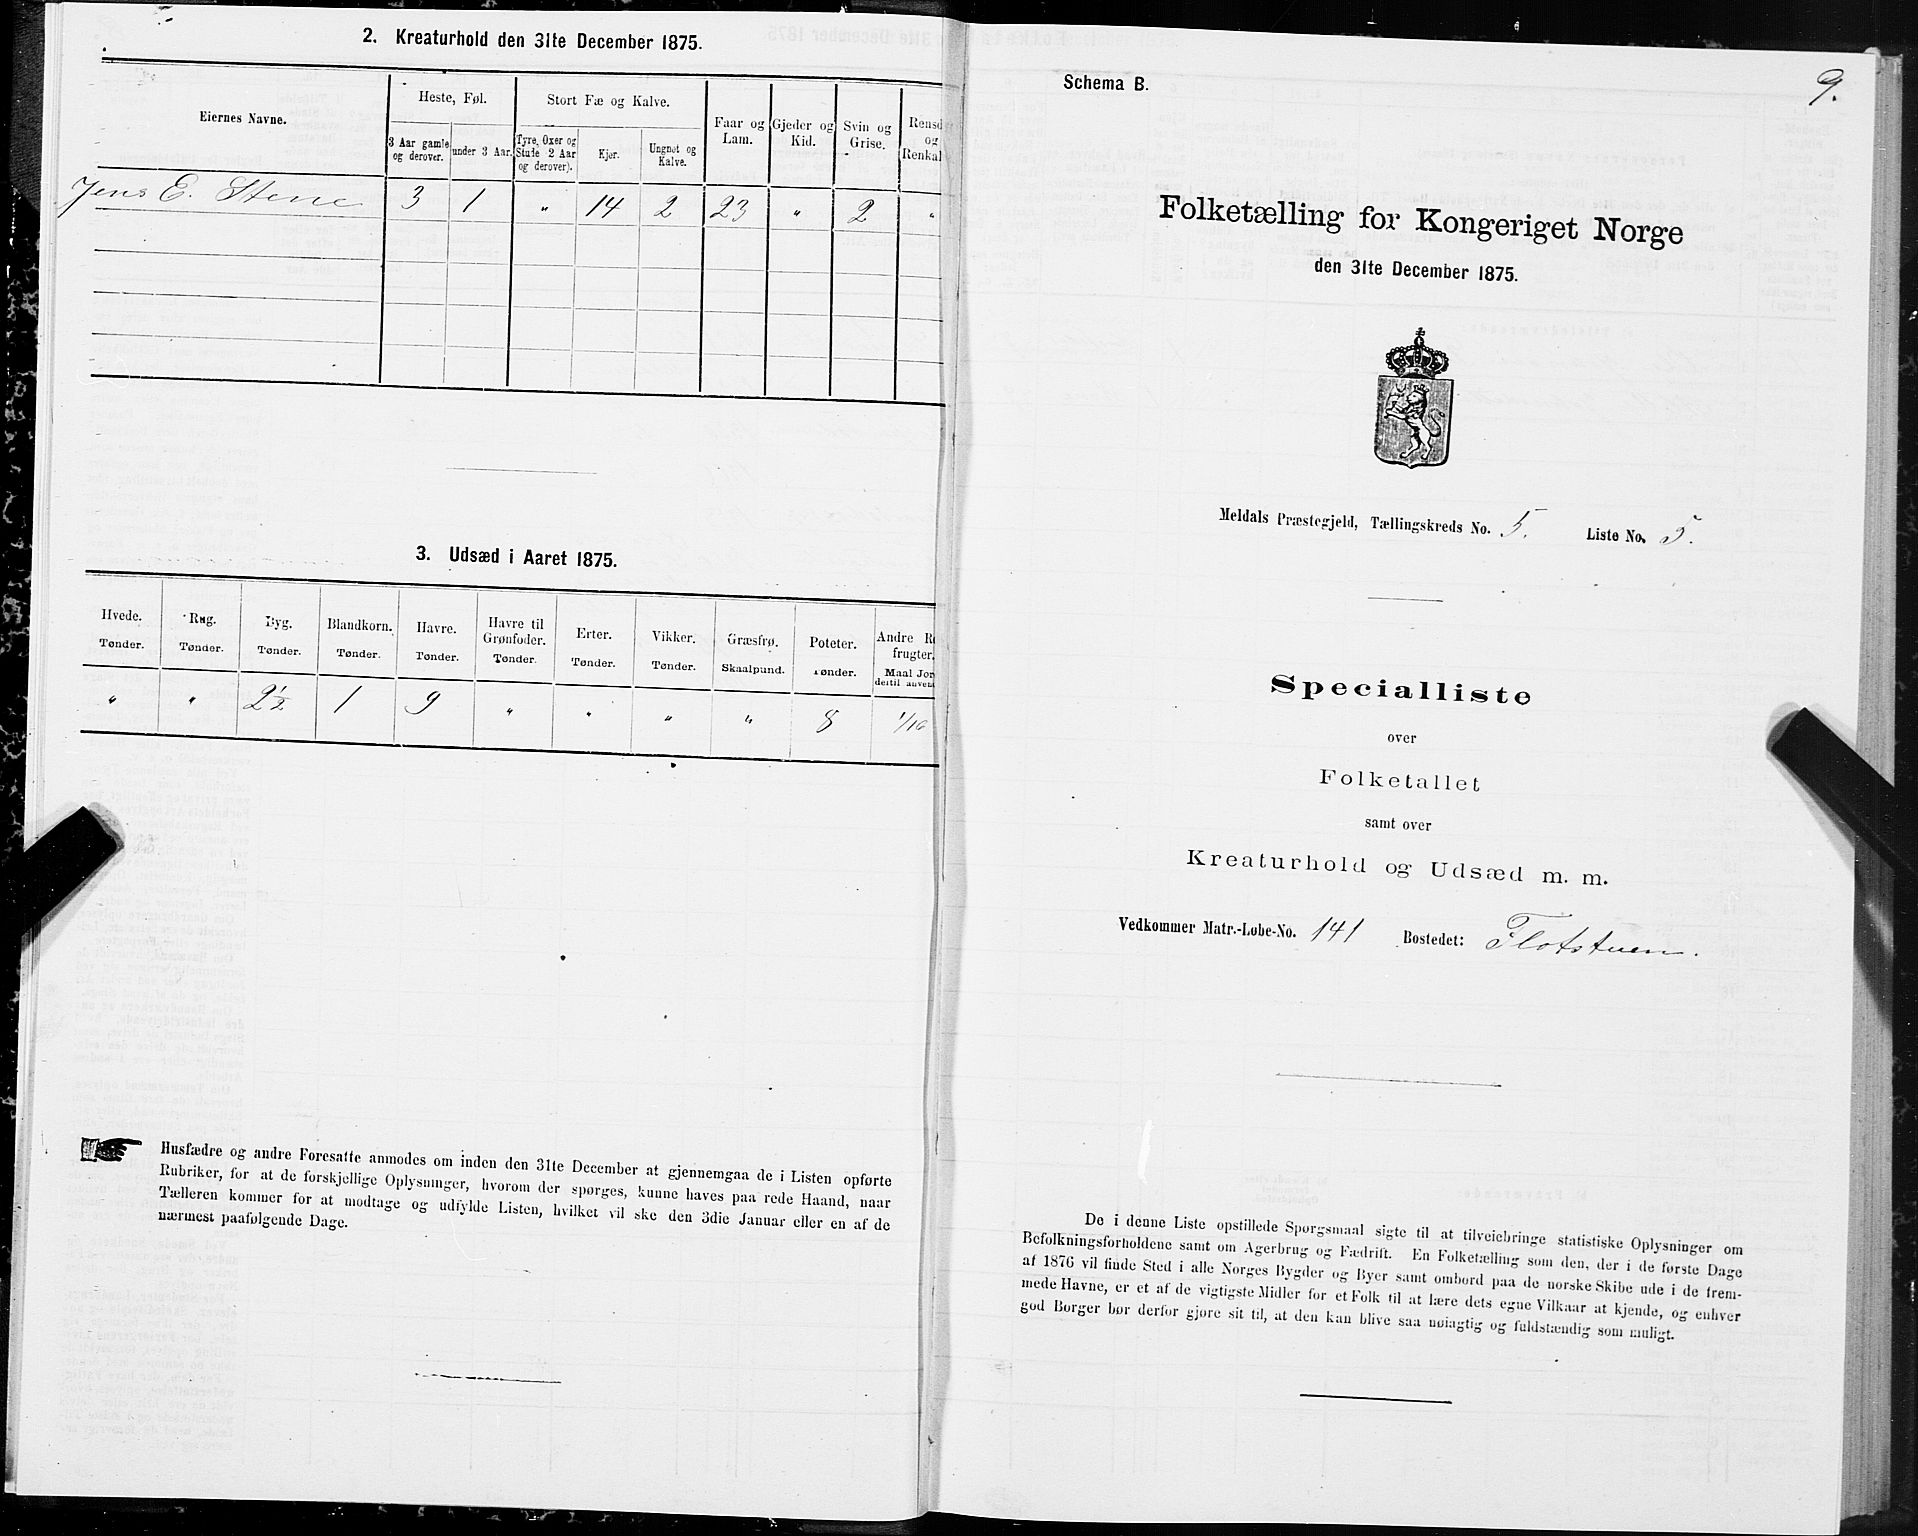 2. Kreaturhold den 31te December 1875.
Eiernes Navne.
Heste, Føl.
Stort Fæ og Kalve.
Faar og Lam.
Gjeder og Kid.
Svin og Grise.
Rensd
og
Renkal
3 Aar gamle og derover.
under 3 Aar.
Tyre, Oxer og Stude 2 Aar og derover).
Kjør.
Ungnøt og Kalve.
Jens E. Stene 3 1 " 14 2 23 " 2 "
3. Udsæd i Aaret 1875.
Hvede. Rug. Byg. Blandkorn. Havre. Havre til Grønfoder. Erter. Vikker. Græsfrø. Poteter. Andre R frugter.
Tønder. Tønder. Tønder. Tønder. Tønder. Tønder. Tønder. Tønder. Skaalpund. Tønder. Maal Jor dertil anvend
" " 2½ 1 9 " " " " 8 1/16
Husfædre og andre Foresatte anmodes om inden den 31te December at gjennemgaa de i Listen opførte
Rubriker, for at de forskjellige Oplysninger, hvorom der spørges, kunne haves paa rede Haand, naar
Tælleren kommer for at modtage og udfylde Listen, hvilket vil ske den 3die Januar eller en af de
nærmest paafølgende Dage.
Schema B.
9.
Folketælling for Kongeriget Norge
den 31te December 1875.
Meldals Præstegjeld, Tællingskreds No. 5. Liste No. 5.
Specialliste
over
Folketallet
samt over
Kreaturhold og Udsæd m. m.
Vedkommer Matr.-Løbe-No. 141 Bostedet: Flotstuen.
De i denne Liste opstillede Spørgsmaal sigte til at tilveiebringe statistiske Oplysninger om
Befolkningsforholdene samt om Agerbrug og Fædrift. En Folketælling som den, der i de første Dage
af 1876 vil finde Sted i alle Norges Bygder og Byer samt ombord paa de norske Skibe ude i de frem-
mede Havne, er et af de vigtigste Midler for et Folk til at lære dets egne Vilkaar at kjende, og enhver
god Borger bør derfor gjøre sit til, at den kan blive saa nøiagtig og fuldstændig som muligt.